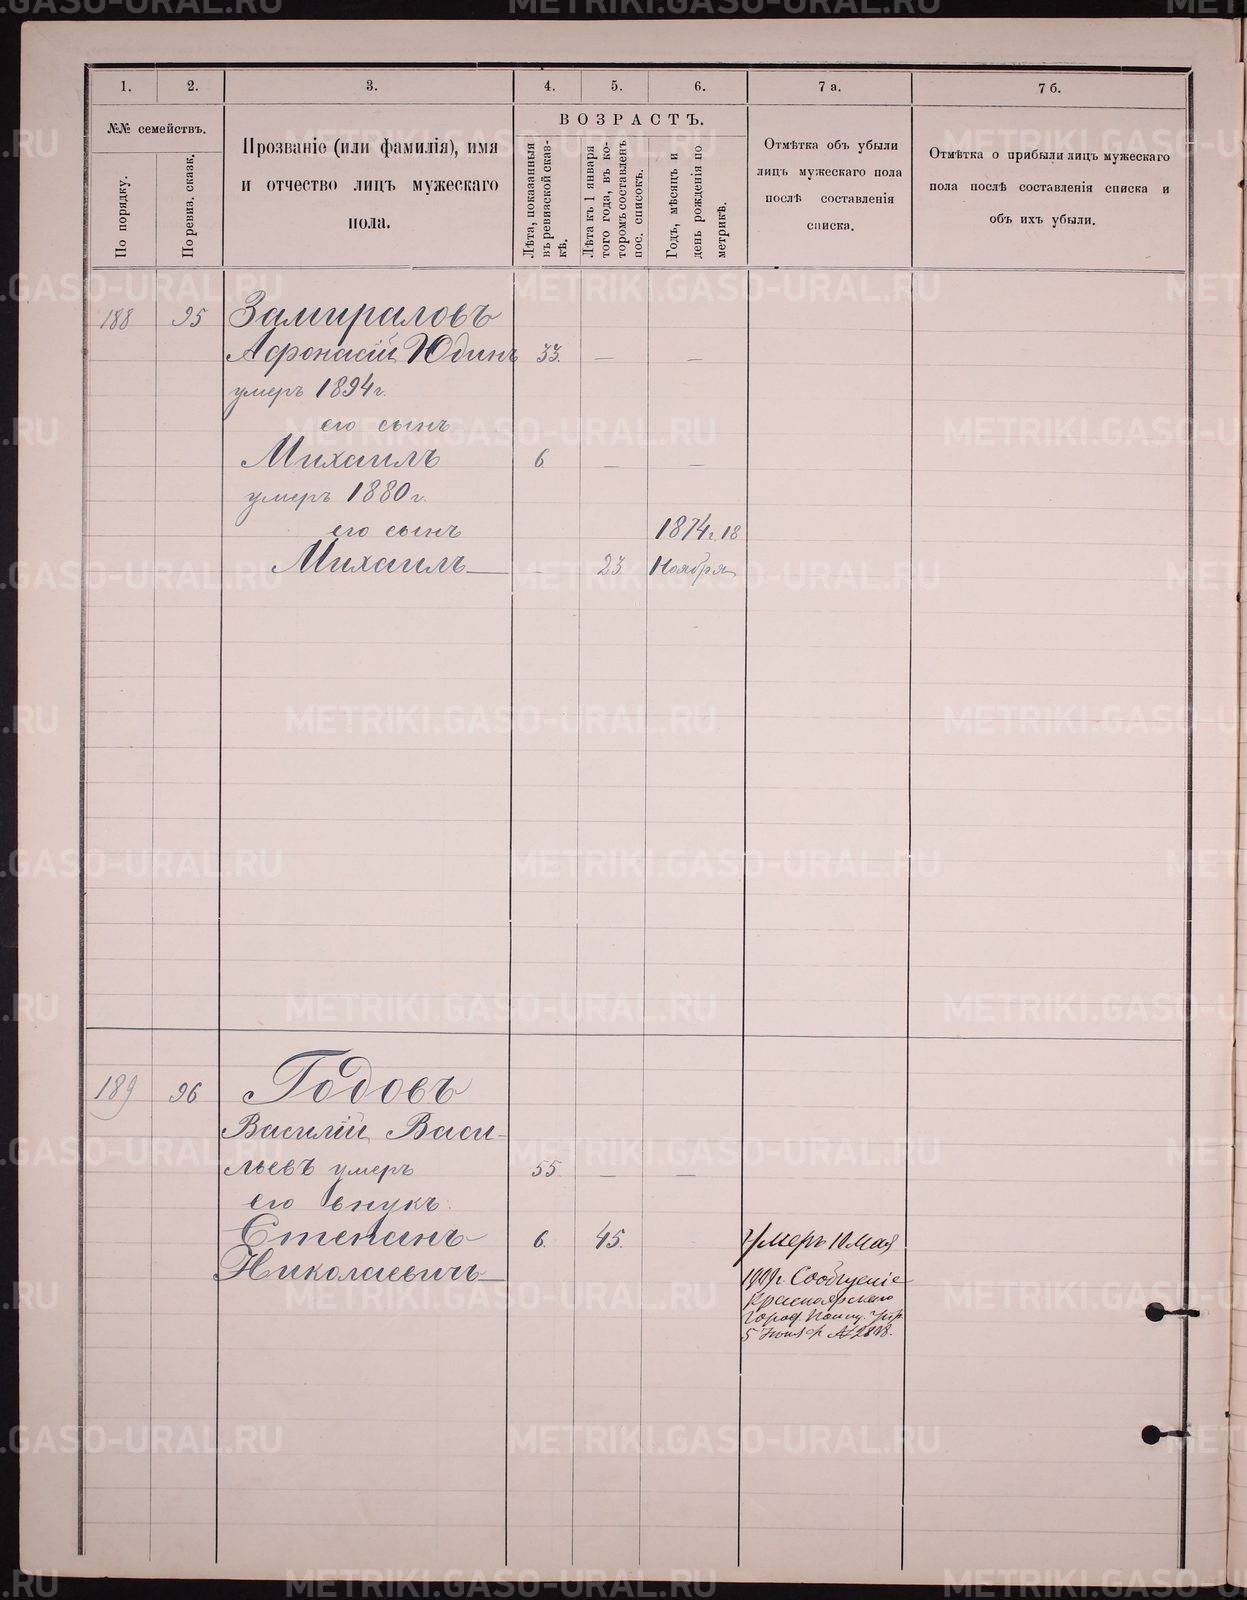 1.
2.
3.
4.
5.
6.
7 а.
7 б.
№№ семействъ.
По порядку.
По ревиз. сказк.
Прозваніе (или фамилія), имя
и отчество лицъ мужескаго
пола.
ВОЗРАСТЪ.
Лѣта, показанныя
въ ревизской сказ-
кѣ.
Лѣта къ 1 января
того года, въ ко-
торомъ составленъ
пос. списокъ.
Годъ, мѣсяцъ и
день рожденія по
метрикѣ.
Отмѣтка объ убыли
лицъ мужескаго пола
послѣ составленія
списка.
Отмѣтка о прибыли лицъ мужескаго
пола послѣ составленія списка и
объ ихъ убыли.
188 95 Замираловъ
Афонасій Юдинъ 33. — —
умеръ 1894 г.
его сынъ
Михаилъ 6 — —
умеръ 1880 г.
его сынъ 1874 г. 18
Михаилъ — — 23 Ноября
189 96 Годовъ
Василій Васи-
льевъ умеръ 55. — —
его внукъ
Степанъ 6. 45. Умеръ 10 мая
Николаевичъ —
Сообщеніе
Красноярскаго
Город. Полиц. Упр.
5 Іюня №
METRIKI.GASO-URAL.RU